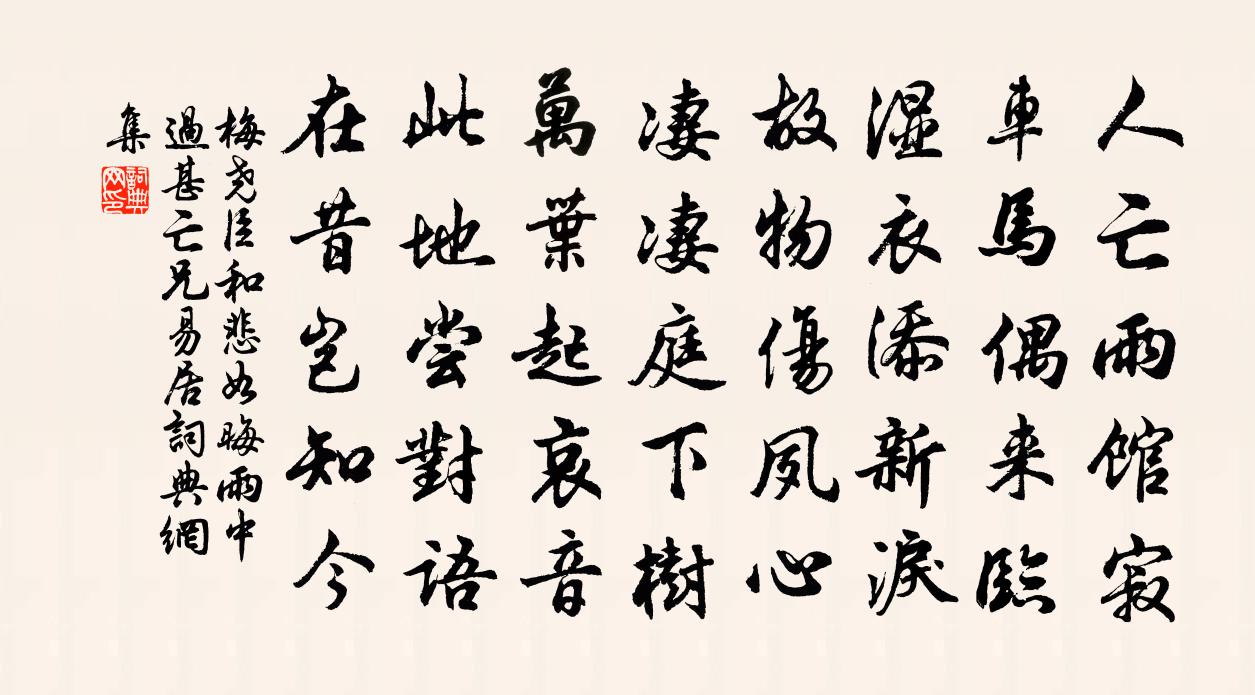 人亡雨館寂
車馬偶来臨
湿衣添新淚
故物傷夙心
凄凄庭下樹
萬葉起哀音
此地尝對語
在昔岂知今
梅尧臣和悲如晦雨中
過甚亡兄易居詞典網
集
詞典
网印